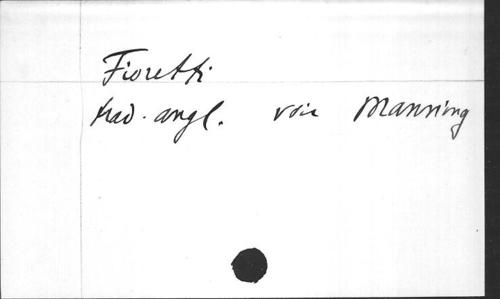 Fioretti
trad. angl. voir Manning